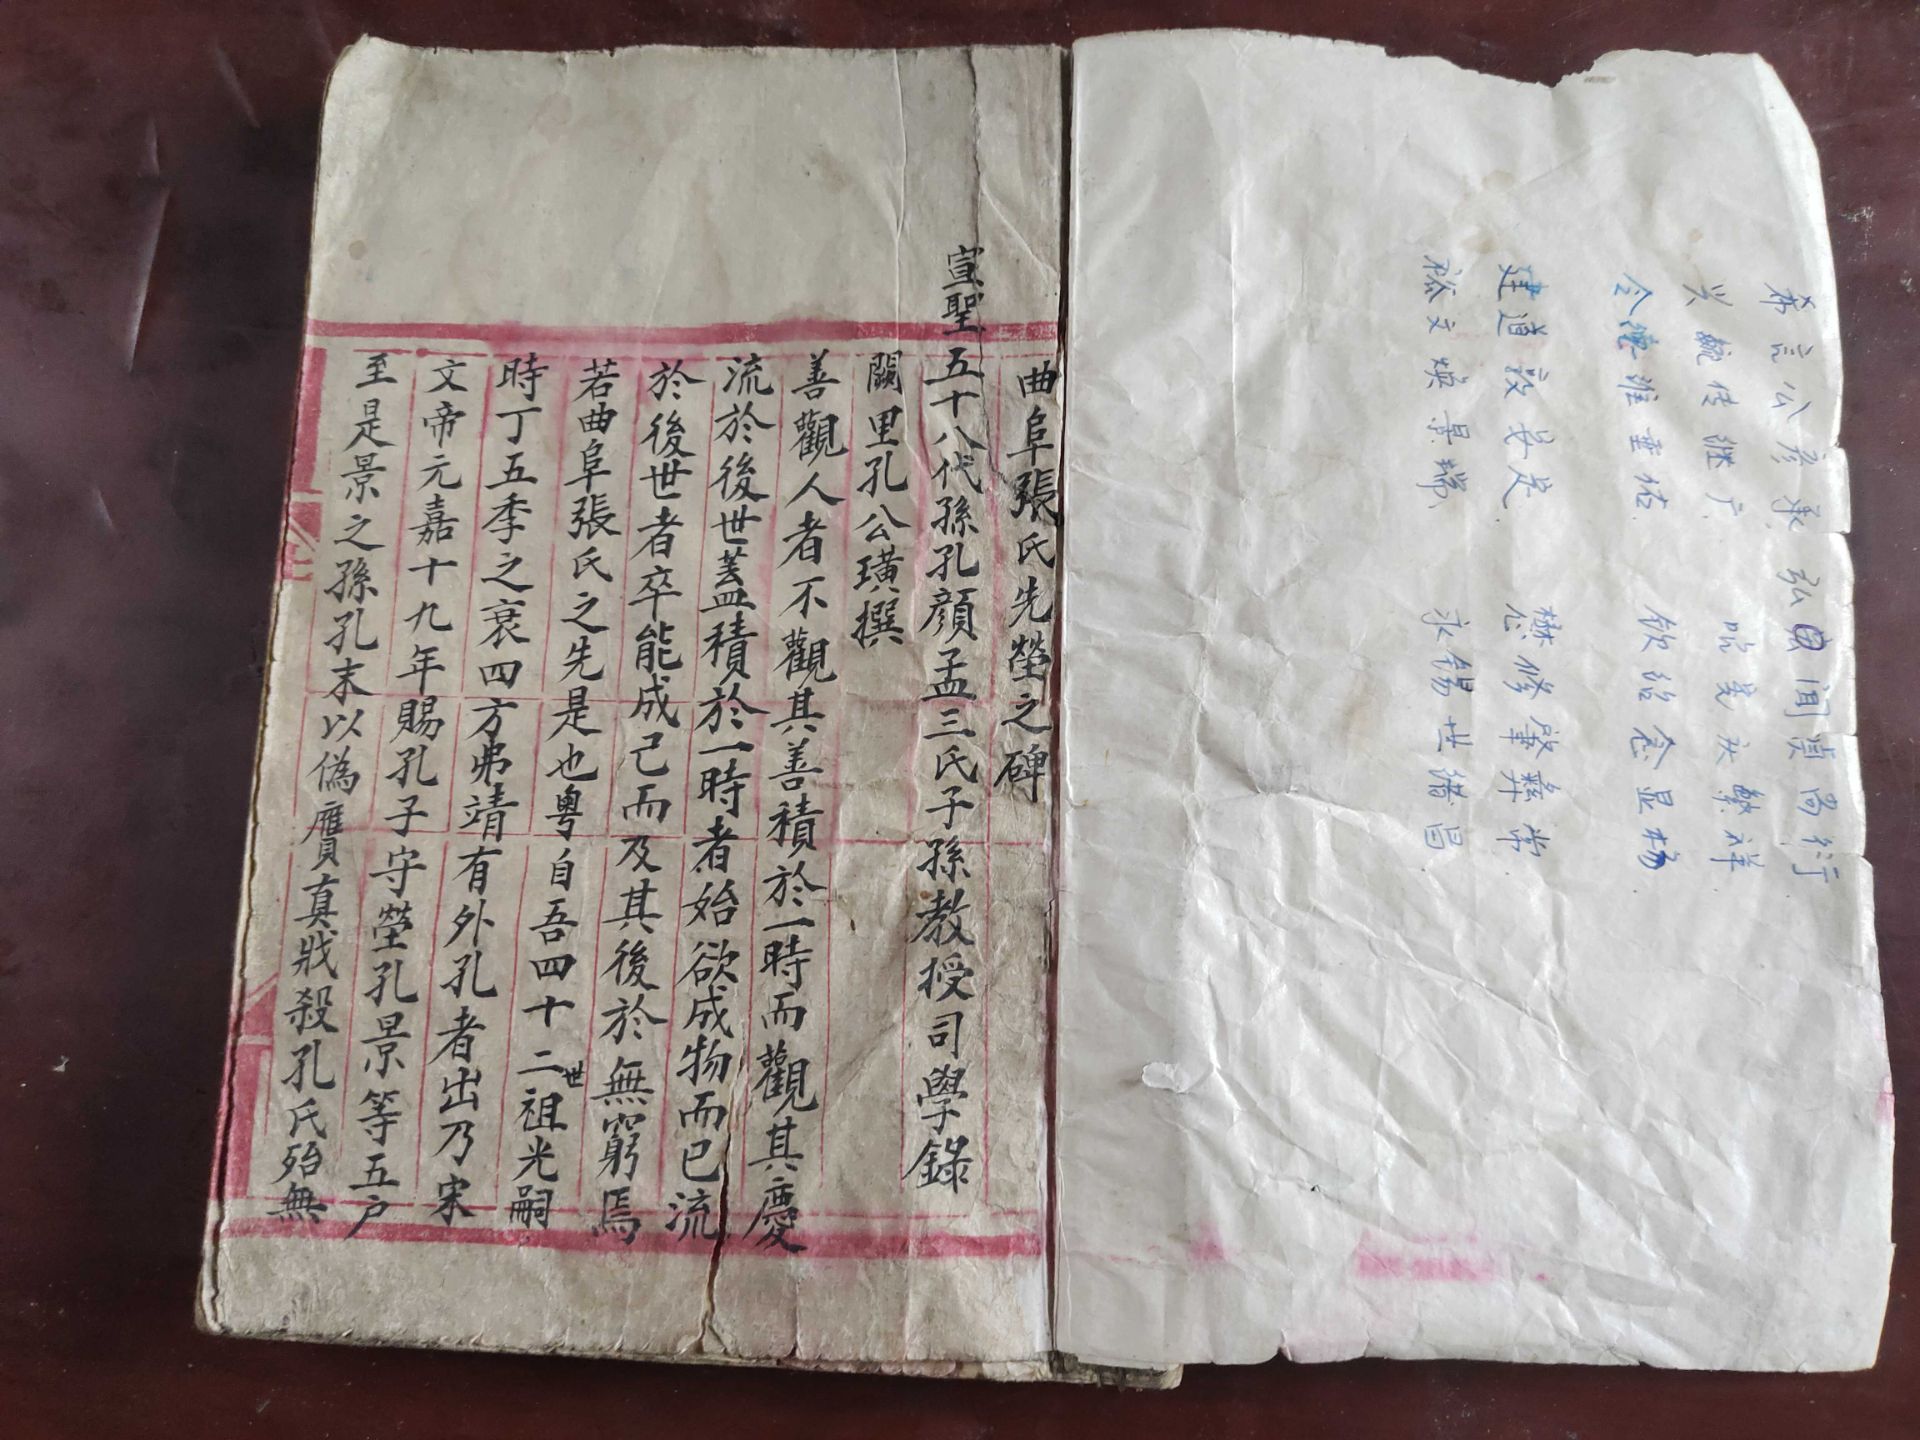 希言公彦承 弘闻贞尚衍
兴毓传继广 昭宪庆繁祥
令德维垂佑 钦绍念显扬
建道敦安定 懋修肇彝常
裕文焕景瑞 永锡世绪昌
曲阜張氏先塋之碑
宣聖五十八代孫孔顏孟三氏子孫教授司學錄
闕里孔公璜撰
善觀人者不觀其善積於一時而觀其慶
流於後世蓋積於一時者始欲成物而已流
於後世者卒能成己而及其後於無窮焉
若曲阜張氏之先是也粤自吾四十二世祖光嗣
時丁五季之衰四方弗靖有外孔者出乃宋
文帝元嘉十九年賜孔子守塋孔景等五户
至是景之孫孔末以偽贋真戕殺孔氏殆無